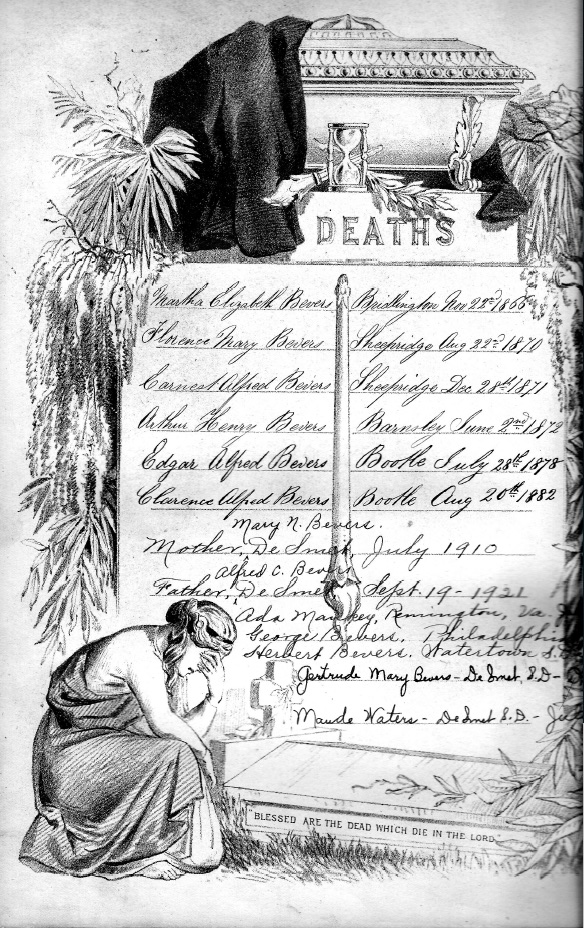 DEATHS
Martha Elizabeth Bevers Bridlington Nov 22nd 1866
Florence Mary Bevers Sheepridge Aug 22nd 1870
Earnest Alfred Bevers Sheepridge Dec 28th 1871
Arthur Henry Bevers Barnsley June 2nd 1872
Edgar Alfred Bevers Bootle July 28th 1878
Clarence Alfred Bevers Bootle Aug 20th 1882
Mary N. Bevers.
Mother, De Smet, July 1910
Alfred C. Bevers
Father, De Smet Sept. 19 - 1921
Ada Remington, Va.
George Bevers. Philadelphia
Herbert Bevers. Watertown S.
Gertrude Mary Bevers - De Smet, S.D -
Maude Waters - De Smet S.D. -
"BLESSED ARE THE DEAD WHICH DIE IN THE LORD."